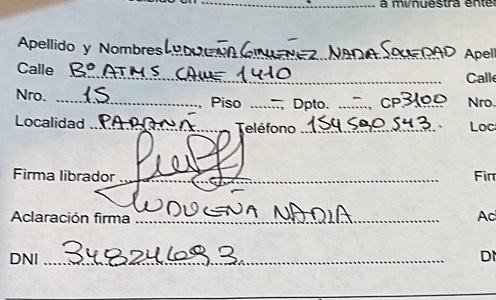 a mi/nuestra ente
Apellido y Nombres LUDUEÑA GIMENEZ NADIA SOLEDAD Apell
Calle Bº ATMS CALLE 1410 Calle
Nro. 15, Piso - Dpto. -, CP 3100 Nro.
Localidad PARANÁ Teléfono 154 590 543. Loc
Firma librador Fir
Aclaración firma LUDUEÑA NADIA Ac
DNI 34824693. DN